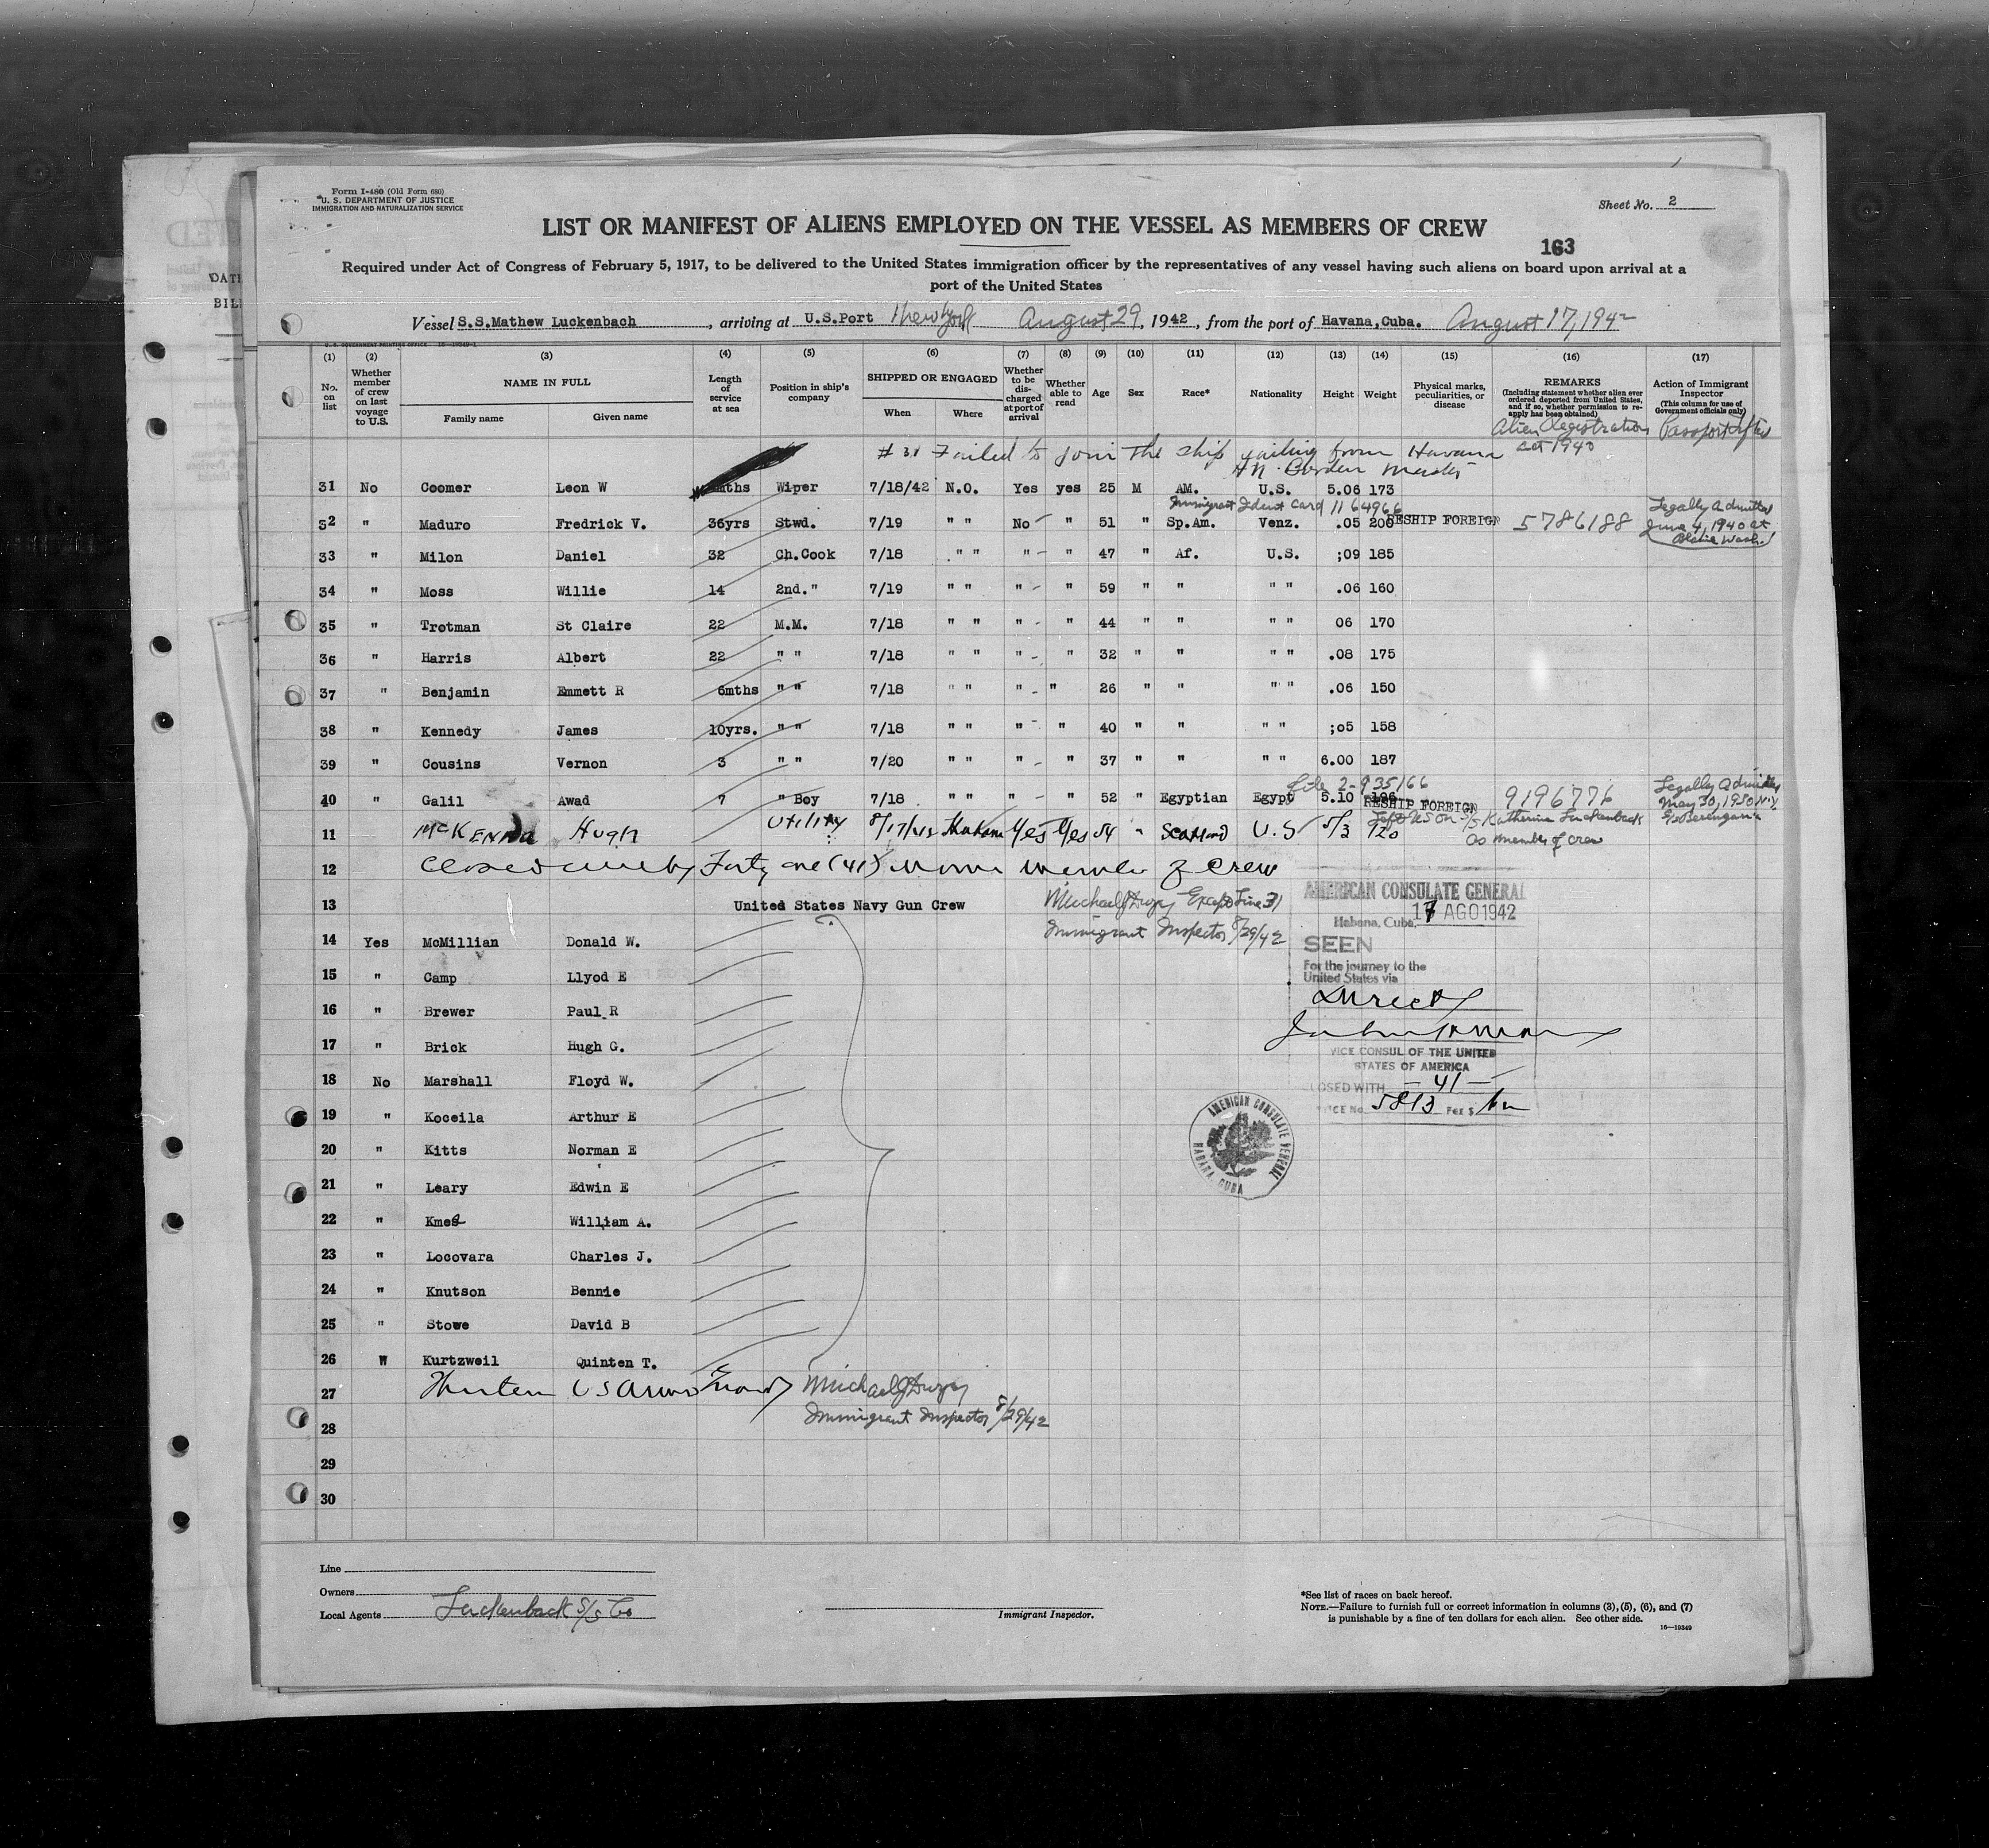 Form I-480 (Old Form 680)
U. S. DEPARTMENT OF JUSTICE
IMMIGRATION AND NATURALIZATION SERVICE
Sheet No. 2
LIST OR MANIFEST OF ALIENS EMPLOYED ON THE VESSEL AS MEMBERS OF CREW
163
Required under Act of Congress of February 5, 1917, to be delivered to the United States immigration officer by the representatives of any vessel having such aliens on board upon arrival at a
port of the United States
Vessel S.S.Mathew Luckenbach, arriving at U.S.Port New York August 29, 1942, from the port of Havana,Cuba. August 17, 1942
U. S. GOVERNMENT PRINTING OFFICE 16—19349-1
(1) (2) (3) (4) (5) (6) (7) (8) (9) (10) (11) (12) (13) (14) (15) (16) (17)
No. on list
Whether member of crew on last voyage to U.S.
NAME IN FULL
Family name Given name
Length of service at sea
Position in ship's company
SHIPPED OR ENGAGED
When Where
Whether to be discharged at port of arrival
Whether able to read
Age
Sex
Race*
Nationality
Height
Weight
Physical marks, peculiarities, or disease
REMARKS
(Including statement whether alien ever ordered deported from United States, and if so, whether permission to reapply has been obtained)
Action of Immigrant Inspector
(This column for use of Government officials only)
Alien Registration
Act 1940
Passport
# 31 Failed to join the ship sailing from Havana
Master
31 No Coomer Leon W mths Wiper 7/18/42 N.O. Yes yes 25 M AM. U.S. 5.06 173
Immigrant Ident Card 1164966
32 " Maduro Fredrick V. 36yrs Stwd. 7/19 " " No " 51 " Sp.Am. Venz. .05 200 RESHIP FOREIGN 5786188
Legally Admitted
June 4, 1940 at
Blaine Wash.
33 " Milon Daniel 32 Ch.Cook 7/18 " " " " 47 " Af. U.S. ;09 185
34 " Moss Willie 14 2nd." 7/19 " " " " 59 " " " " .06 160
35 " Trotman St Claire 22 M.M. 7/18 " " " " 44 " " " " 06 170
36 " Harris Albert 22 " " 7/18 " " " " 32 " " " " .08 175
37 " Benjamin Emmett R 6mths " " 7/18 " " " " 26 " " " " .06 150
38 " Kennedy James 10yrs. " " 7/18 " " " " 40 " " " " ;05 158
39 " Cousins Vernon 3 " " 7/20 " " " " 37 " " " " 6.00 187
file 2-935166
40 " Galil Awad 7 " Boy 7/18 " " " " 52 " Egyptian Egypt 5.10 196 RESHIP FOREIGN 9196776
Legally Admitted
May 30, 1930 N.Y.
S/S Berengaria
Left US on S/S Katherine Luckenback
as member of crew
11 McKenna Hugh Utility 8/17/42 Habana Yes Yes 54 " Scotland U.S 5/3 120
12 Closed Forty one (41) member of Crew
13 United States Navy Gun Crew
Except Line 31
Immigrant Inspector 8/29/42
AMERICAN CONSULATE GENERAL
Habana, Cuba, 17 AGO 1942
SEEN
For the journey to the
United States via
Direct
VICE CONSUL OF THE UNITED
STATES OF AMERICA
CLOSED WITH — 41 —
SERVICE No. 5813 FEE $
AMERICAN CONSULATE GENERAL HABANA, CUBA
14 Yes McMillian Donald W.
15 " Camp Llyod E
16 " Brewer Paul R
17 " Brick Hugh G.
18 No Marshall Floyd W.
19 " Koceila Arthur E
20 " Kitts Norman E
21 " Leary Edwin E
22 " Kmes William A.
23 " Locovara Charles J.
24 " Knutson Bennie
25 " Stowe David B
26 W Kurtzweil Quinten T.
27
Immigrant Inspector 8/29/42
28
29
30
Line
Owners
Local Agents Luckenback S/S Co
Immigrant Inspector.
*See list of races on back hereof.
NOTE.—Failure to furnish full or correct information in columns (3), (5), (6), and (7)
is punishable by a fine of ten dollars for each alien. See other side.
16—19349